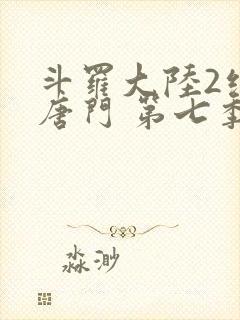 斗羅大陸2
唐門 第七季
淼渺